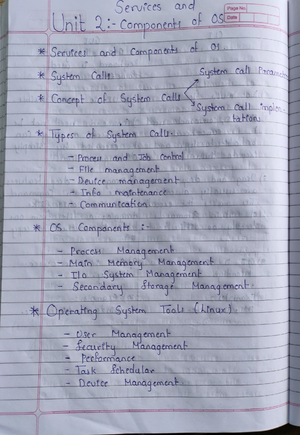 Services and
Unit 2:- Components of OS
Page No.
Date
* Services and Components of OS
* System Calls
System Call
* Concept of System Calls
System Call implemen
tation
* Types of System Calls
- Process and Job control
- File management
- Device management
- Info maintenance
- Communication
* OS Components :-
- Process Management
- Main Memory Management
- I/o System Management
- Secondary Storage Management
* Operating System Tools (Linux)
- User Management
- Security Management
- Performance
- Task Schedular
- Device Management